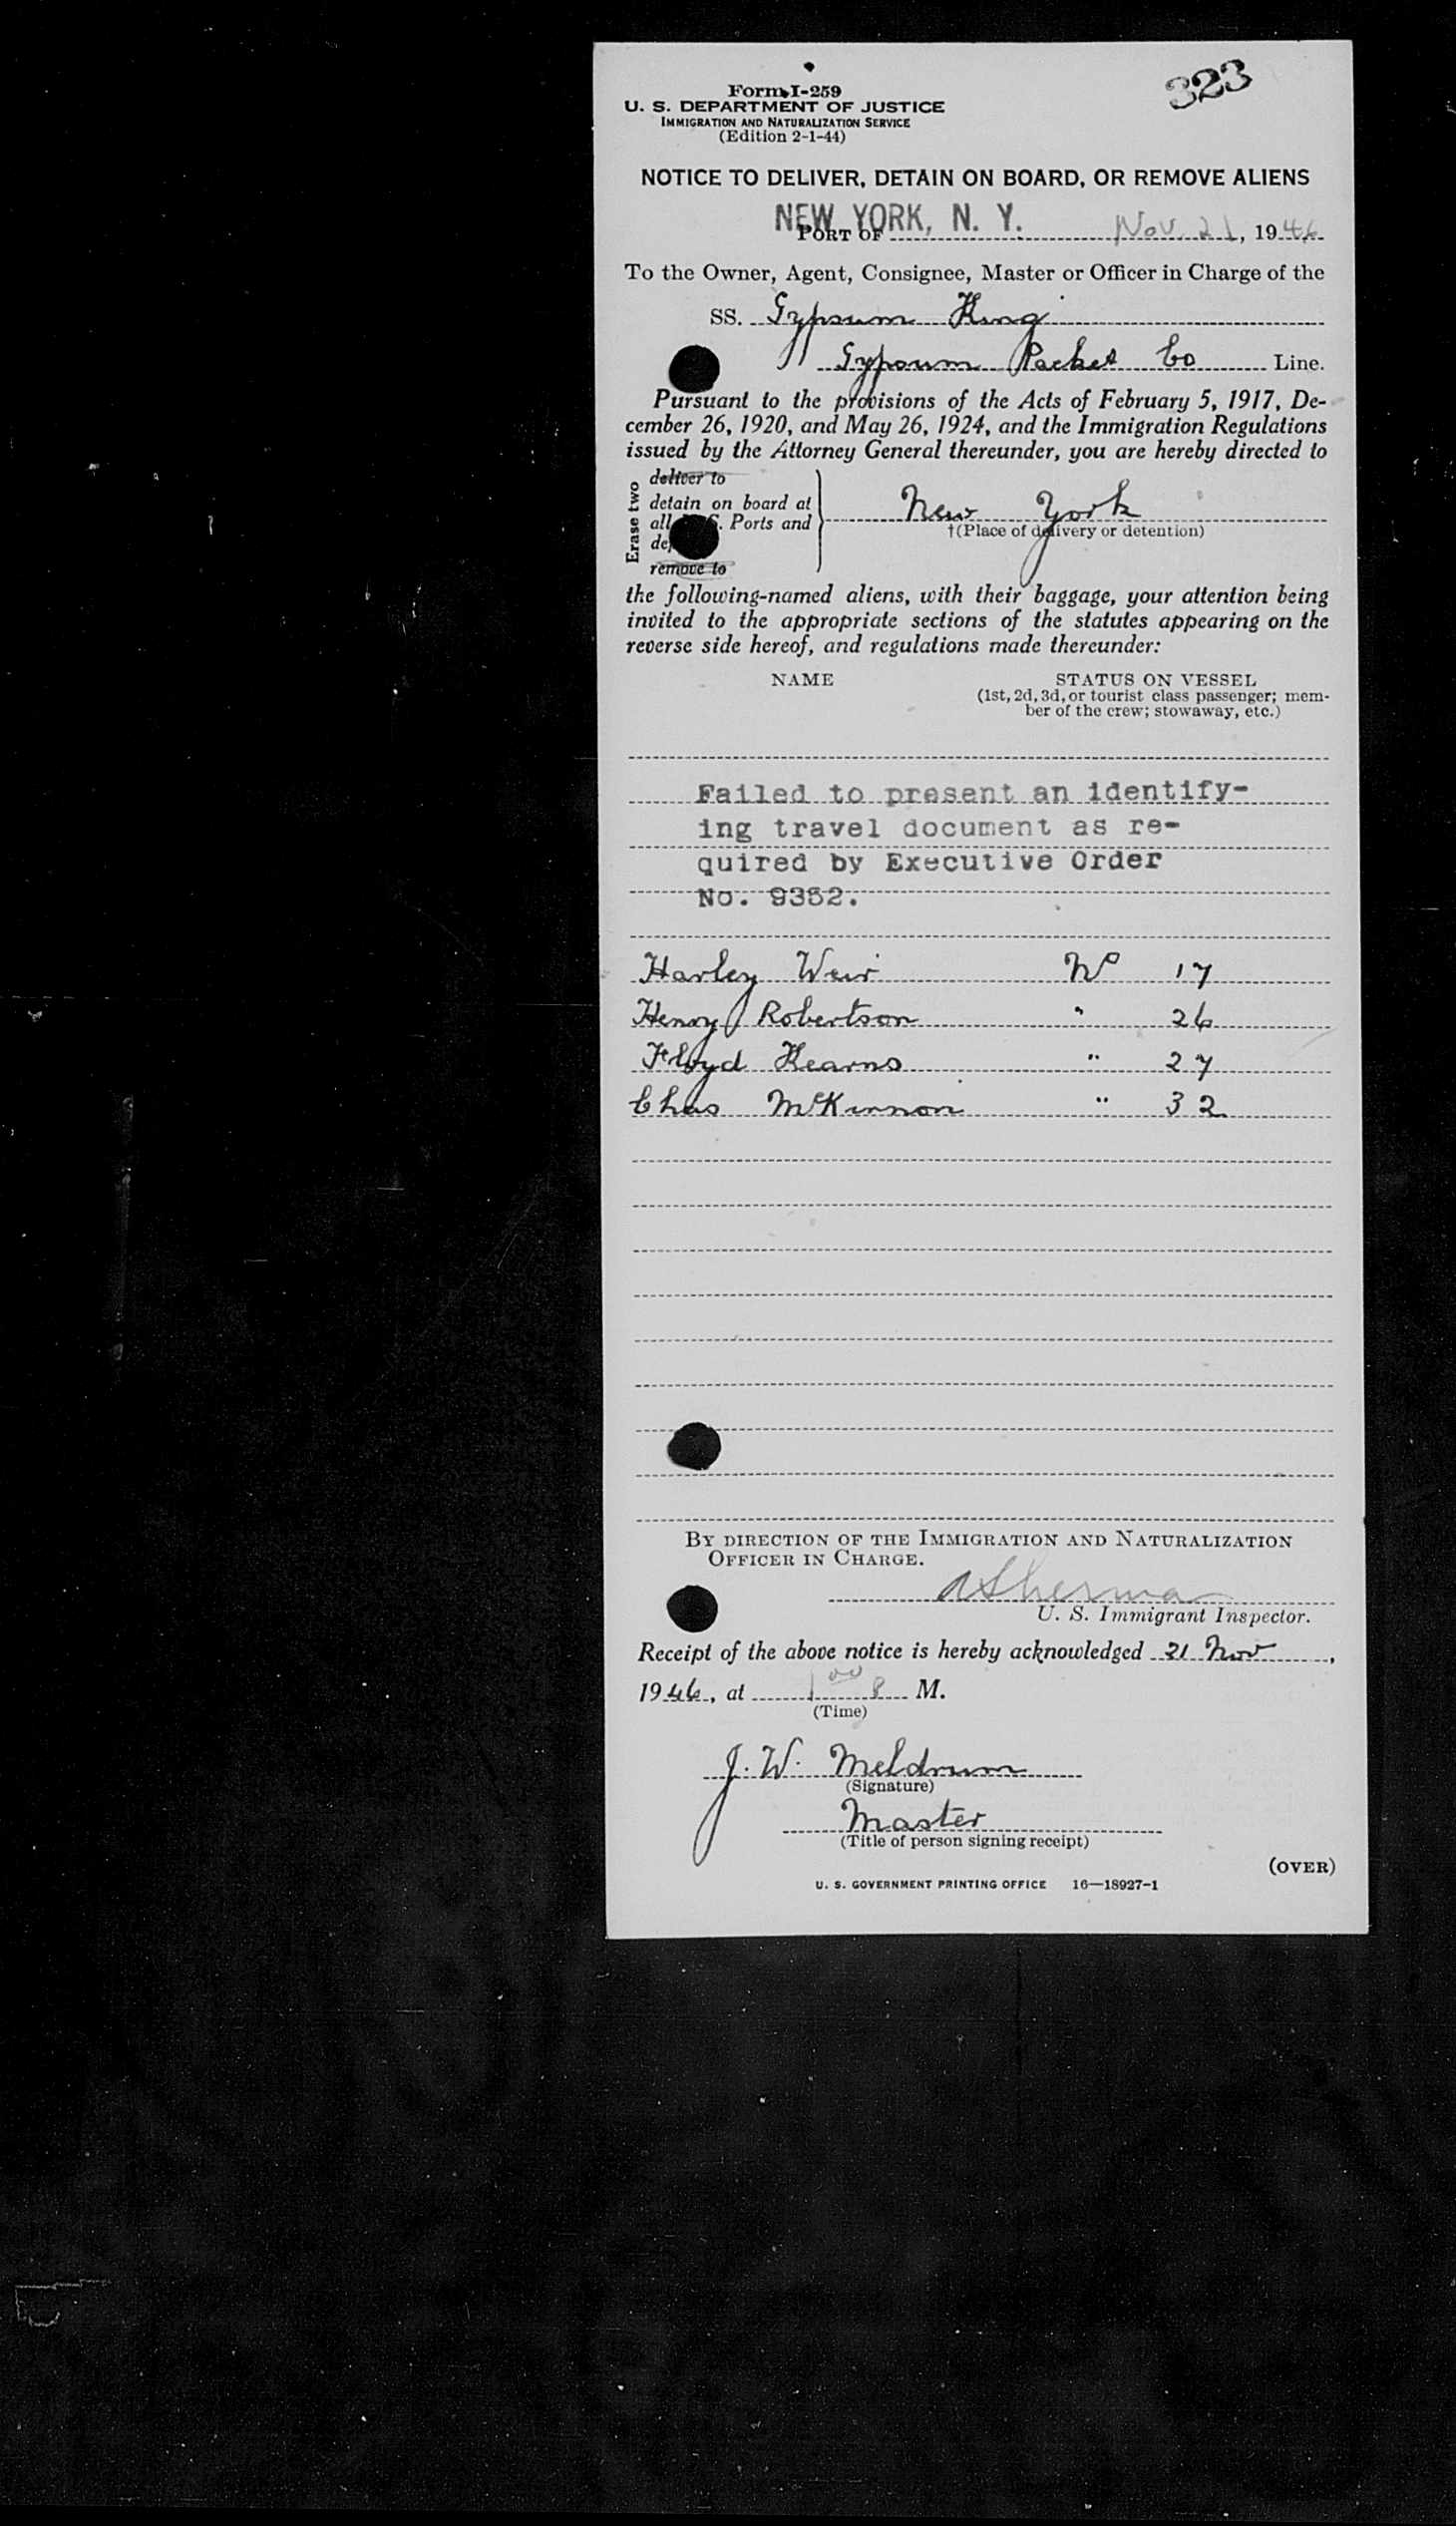 323
Form I-259
U. S. DEPARTMENT OF JUSTICE
IMMIGRATION AND NATURALIZATION SERVICE
(Edition 2-1-44)
NOTICE TO DELIVER, DETAIN ON BOARD, OR REMOVE ALIENS
NEW YORK, N. Y.
PORT OF Nov. 21, 1946
To the Owner, Agent, Consignee, Master or Officer in Charge of the
SS. Gypsum King
Gypsum Packet Co Line.
Pursuant to the provisions of the Acts of February 5, 1917, De-
cember 26, 1920, and May 26, 1924, and the Immigration Regulations
issued by the Attorney General thereunder, you are hereby directed to
Erase two
deliver to
detain on board at
all Ports and
remove to
New York
†(Place of delivery or detention)
the following-named aliens, with their baggage, your attention being
invited to the appropriate sections of the statutes appearing on the
reverse side hereof, and regulations made thereunder:
NAME STATUS ON VESSEL
(1st, 2d, 3d, or tourist class passenger; mem-
ber of the crew; stowaway, etc.)
Failed to present an identify-
ing travel document as re-
quired by Executive Order
No. 9352.
Harley Weir No 17
Henry Robertson " 26
Floyd Kearns " 27
Chas McKinnon " 32
BY DIRECTION OF THE IMMIGRATION AND NATURALIZATION
OFFICER IN CHARGE.
A Sherman
U. S. Immigrant Inspector.
Receipt of the above notice is hereby acknowledged 21 Nov,
1946, at 1 00 P M.
(Time)
J. W. Meldrum
(Signature)
Master
(Title of person signing receipt)
(OVER)
U. S. GOVERNMENT PRINTING OFFICE 16—18927-1